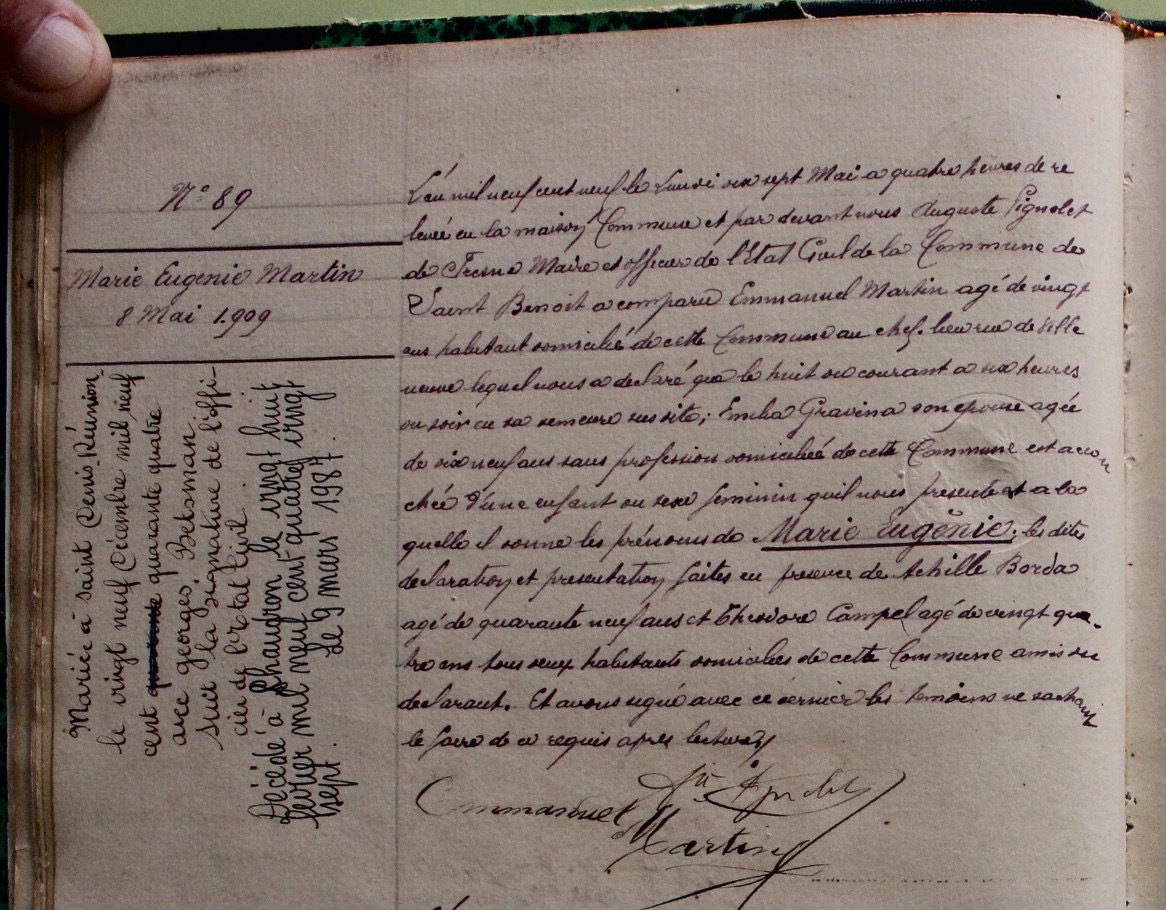 N° 89
Marie Eugenie Martin
8 Mai 1.909
Mariée à saint Denis_Réunion_
le vingt neuf Décembre mil neuf
cent quarante quatre
avec georges. Betsman.
suit la signature de l'offi-
cier de l'état civil.
Décédé à Chaudron le vingt huit
février mil neuf cent quatre vingt
sept. Le 9 mars 1987.
L'an mil neuf cent neuf le Lundi dix sept Mai a quatre heures de re
levée en la maison Commune et par devant nous Auguste Pignolet
de Fresne Maire et officier de l'Etat Civil de la Commune de
Saint Benoit a comparu Emmanuel Martin agé de vingt
ans habitant domicilié de cette Commune au chef. lieu rue de Ville
neuve lequel nous a declaré que le huit du courant a six heures
du soir en sa demeure sus site; Emilia Gravina son epouse agée
de dix neuf ans sans profession domiciliée de cette Commune est accou
chée d'une enfant du sexe feminin qu'il nous presente et a la
quelle il donne les prénoms de Marie Eugénie; les dites
declaration et presentation faites en presence de Achille Borda
agé de quarante neuf ans et Theodore Campel agé de vingt qua-
tre ans tous deux habitants domiciliés de cette Commune amis du
declarant. Et avons signé avec ce dernier les temoins ne sachant
le faire de ce requis après lecture
Emmanuel
Martin